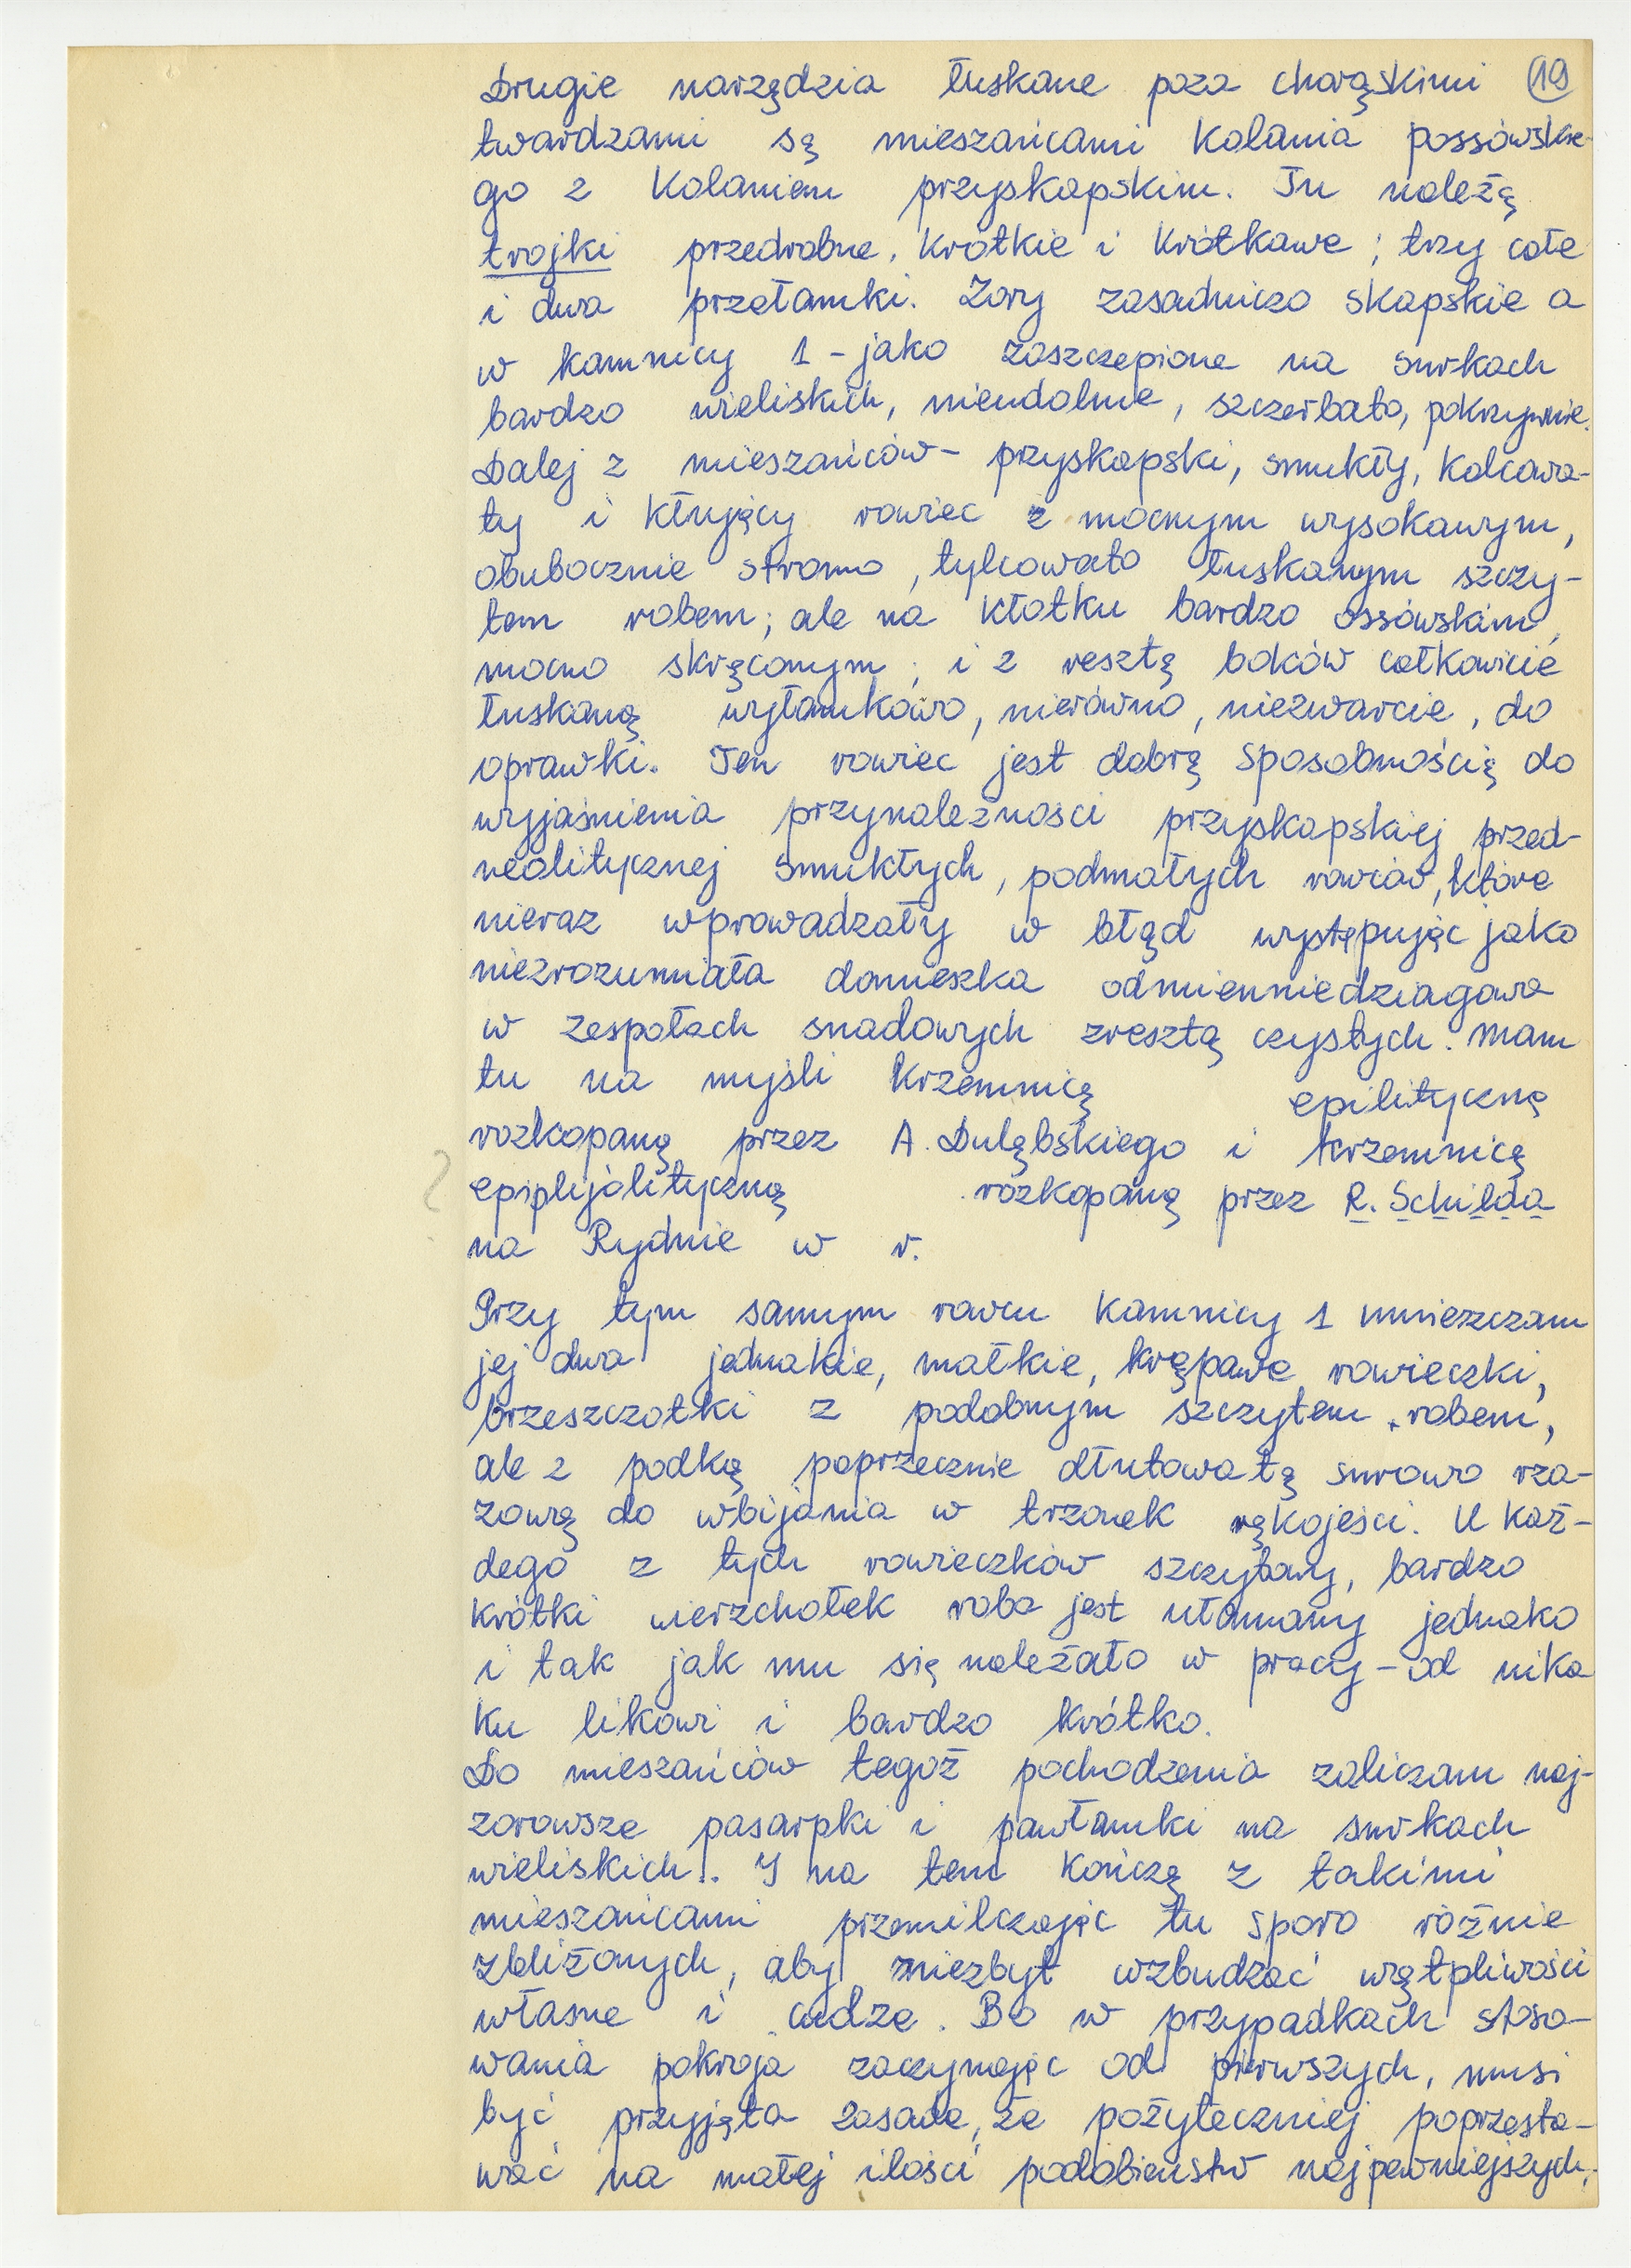 Drugie narzędzia łuskane poza charąskimi 19
twardzami są mieszańcami Kolania possówskie-
go z Kolaniem przyskapskim. Tu należą
trojki przedrobne, krótkie i krótkawe; trzy całe
i dwa przełamki. Zary zasadniczo skapskie a
w kamnicy 1 - jako zaszczepione na surkach
bardzo wieliskich, nieudolnie, szczerbato, pokrzywnie.
Dalej z mieszańców - przyskapski, smukły, kolcowa-
ty i kłujący rawiec z mocnym wysokawym,
obubocznie stromo, tylcowato łuskanym szczy-
tem robem; ale na kłotku bardzo ossówskim,
mocno skręconym; i z resztą boków całkowicie
łuskaną wyłamkowo, nierówno, niezwarcie, do
oprawki. Ten rawiec jest dobrą sposobnością do
wyjaśnienia przynależności przyskapskiej przed-
neolitycznej smukłych, podmałych rawców, które
nieraz wprowadzały w błąd występując jako
niezrozumiała domieszka odmienniedziagowa
w zespołach snadowych zresztą czystych. Mam
tu na myśli Krzemnicą epilityczną
rozkopaną przez A. Dulębskiego i krzemnicą
epiplijolityczną rozkopaną przez R. Schilda
na Rydnie w r.
Przy tym samym rawcu kamnicy 1 umieszczam
jej dwa jednakie, małkie, krępawe rawieczki,
brzeszczotki z podobnym szczytem robem,
ale z podką poprzecznie dłutowatą surowo rza-
zową do wbijania w trzonek rękojeści. U każ-
dego z tych rawieczków szczytowy, bardzo
krótki wierzchołek roba jest ułamany jednako
i tak jak mu się należało w pracy - od nika
ku likowi i bardzo krótko.
Do mieszańców tegoż pochodzenia zaliczam naj-
zarowsze pasarpki i pawłamki na surkach
wieliskich. I na tem kończę z takimi
mieszańcami przemilczając tu sporo różnie
zbliżonych, aby niezbyt wzbudzać wątpliwości
własne i cudze. Bo w przypadkach stoso-
wania pokroja zaczynając od pierwszych, musi
być przyjęta zasada, że pożyteczniej poprzesta-
wać na małej ilości podobieństw najpewniejszych,